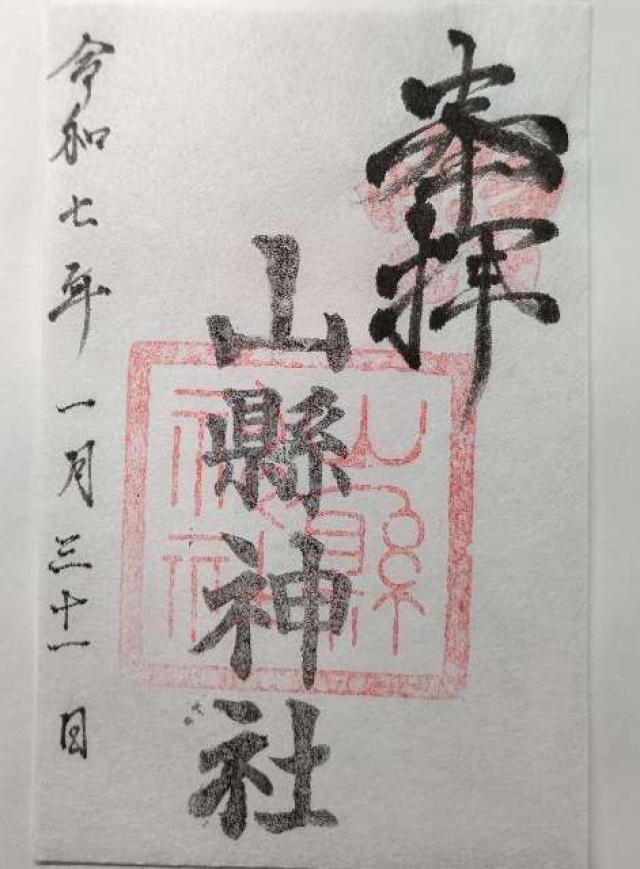 奉拝
山縣神社
山縣神社
令和七年 一月 三十一日